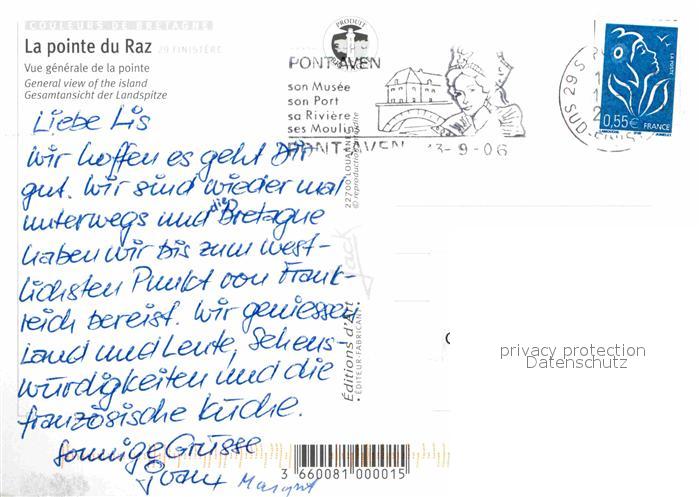 COULEURS DE BRETAGNE
La pointe du Raz 29 FINISTÈRE
Vue générale de la pointe
General view of the island
Gesamtansicht der Landspitze
Liebe Lis
wir hoffen es geht Dir
gut. Wir sind wieder mal
unterwegs und die Bretagne
haben wir bis zum west-
lichsten Punkt von Frank-
reich bereist. Wir geniessen
Land und Leute, Sehens-
würdigkeiten und die
französische Küche.
Sonnige Grüsse
Margrit
PRODUIT
PONT-AVEN
son Musée
son Port
sa Rivière
ses Moulins
PONT-AVEN
-9-06
29 S
SUD-FINIS
0,55€ FRANCE
LA POSTE
22700 LOUANNEC
© reproduction interdite
Jack
Éditions d'Art
ÉDITEUR-FABRICANT
privacy protection
Datenschutz
3 660081 000015